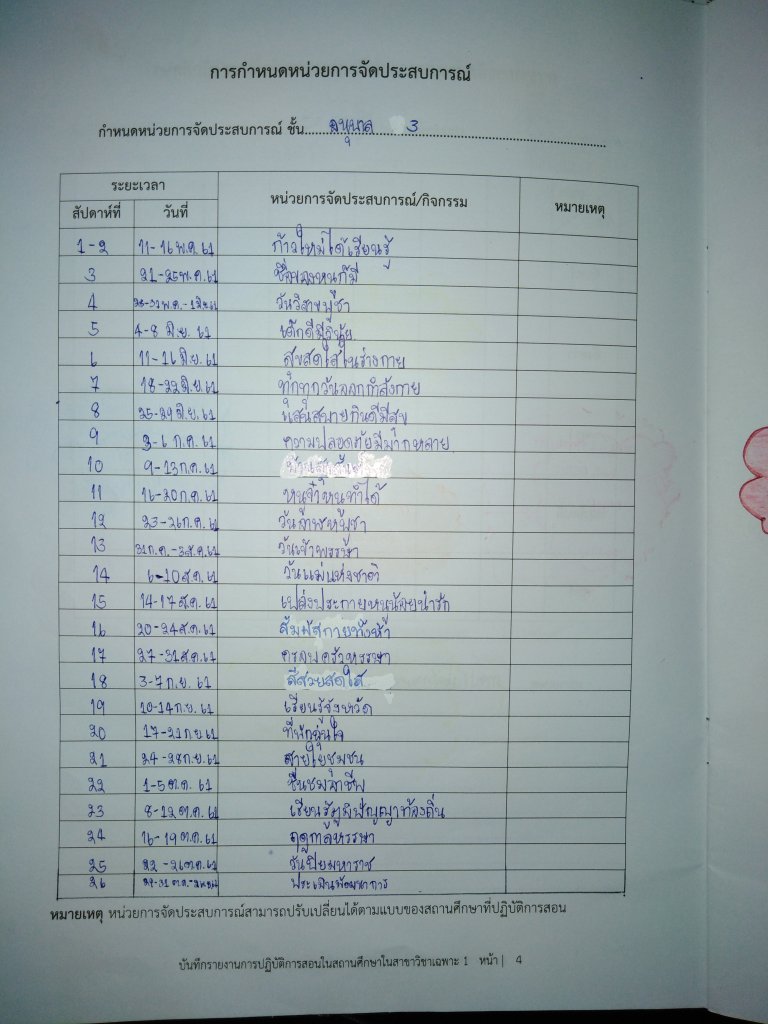 การกำหนดหน่วยการจัดประสบการณ์
กำหนดหน่วยการจัดประสบการณ์ ชั้น......อนุบาล 3......
ระยะเวลา หน่วยการจัดประสบการณ์/กิจกรรม หมายเหตุ
สัปดาห์ที่ วันที่
1-2 11-16 พ.ค. 61 ก้าวใหม่ได้เรียนรู้
3 21-25 พ.ค. 61 ชื่อของหนูก็มี
4 วันวิสาขบูชา
5 4-8 มิ.ย. 61 เด็กดีมีวินัย
6 11-16 มิ.ย. 61 สุขสดใสในร่างกาย
7 18-22 มิ.ย. 61 ทุกทุกวันออกกำลังกาย
8 25-29 มิ.ย. 61 แสนสบายกินดีมีสุข
9 2-6 ก.ค. 61 ความปลอดภัยมีมากหลาย
10 9-13 ก.ค. 61
11 16-20 ก.ค. 61 หนูจ๋าหนูทำได้
12 23-26 ก.ค. 61 วันอาสาฬหบูชา
13 31 ก.ค.-3 ส.ค. 61 วันเข้าพรรษา
14 6-10 ส.ค. 61 วันแม่แห่งชาติ
15 14-17 ส.ค. 61 เปล่งประกายหนูน้อยน่ารัก
16 20-24 ส.ค. 61 สัมผัสกายทั้งห้า
17 27-31 ส.ค. 61 ครอบครัวหรรษา
18 3-7 ก.ย. 61 สีสวยสดใส
19 10-14 ก.ย. 61 เรียนรู้จังหวัด
20 17-21 ก.ย. 61 ที่พักอุ่นใจ
21 24-28 ก.ย. 61 สายใยชุมชน
22 1-5 ต.ค. 61 ชื่นชมอาชีพ
23 8-12 ต.ค. 61 เรียนรู้ภูมิปัญญาท้องถิ่น
24 16-19 ต.ค. 61 ฤดูกาลหรรษา
25 22-26 ต.ค. 61 วันปิยมหาราช
26 ประเมินพัฒนาการ
หมายเหตุ หน่วยการจัดประสบการณ์สามารถปรับเปลี่ยนได้ตามแบบของสถานศึกษาที่ปฏิบัติการสอน
บันทึกรายงานการปฏิบัติการสอนในสถานศึกษาในสาขาวิชาเฉพาะ 1 หน้า | 4